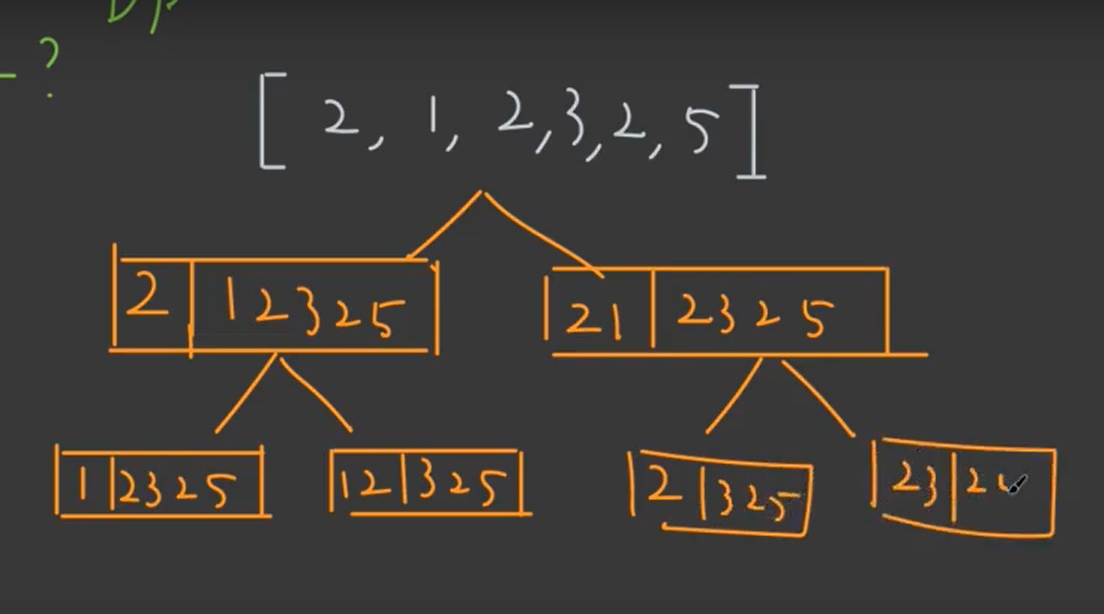 ?
[ 2, 1, 2, 3, 2, 5 ]
2 | 1 2 3 2 5
21 | 2 3 2 5
1 | 2 3 2 5
12 | 3 2 5
2 | 3 2 5
23 | 2